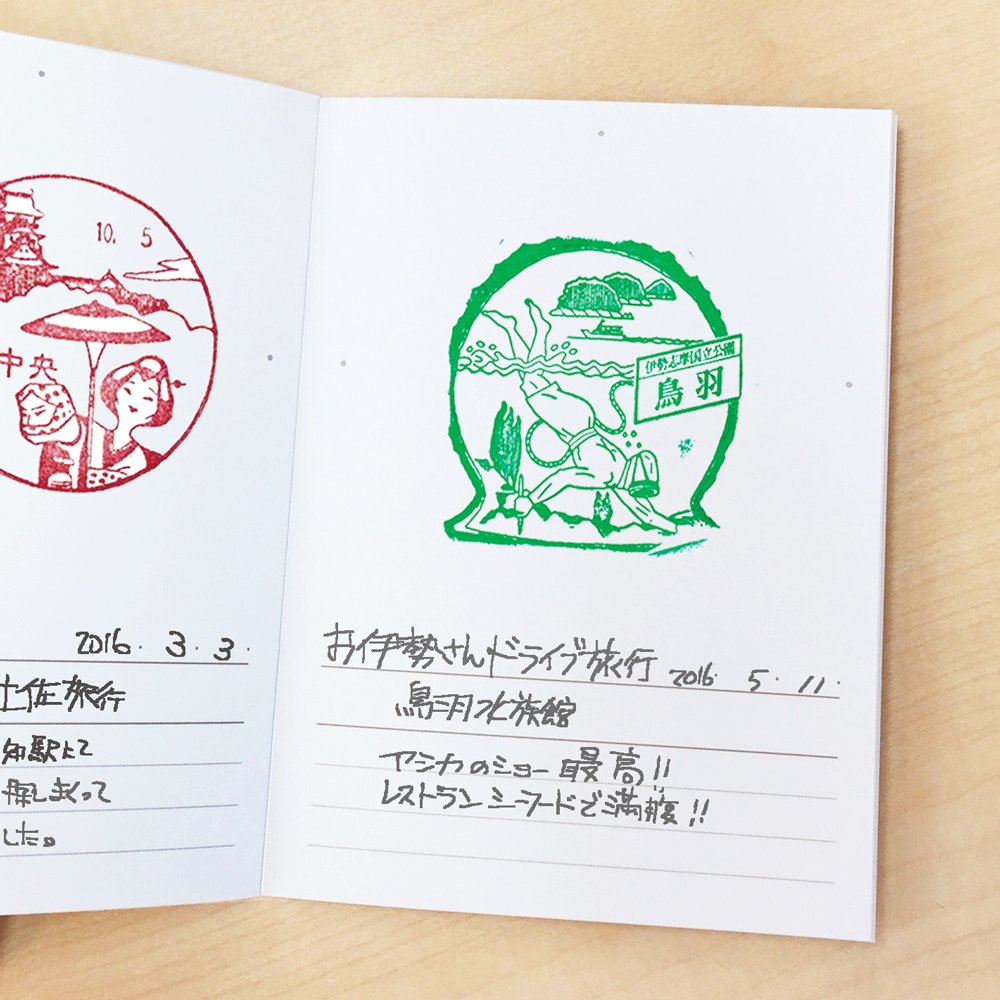 10. 5
中央
2016. 3. 3.
土佐旅行
知駅にて
探しまくって
した。
伊勢志摩国立公園
鳥羽
お伊勢さんドライブ旅行 2016. 5. 11.
鳥羽水族館
アシカのショー最高!!
レストランシーフードで満腹!!